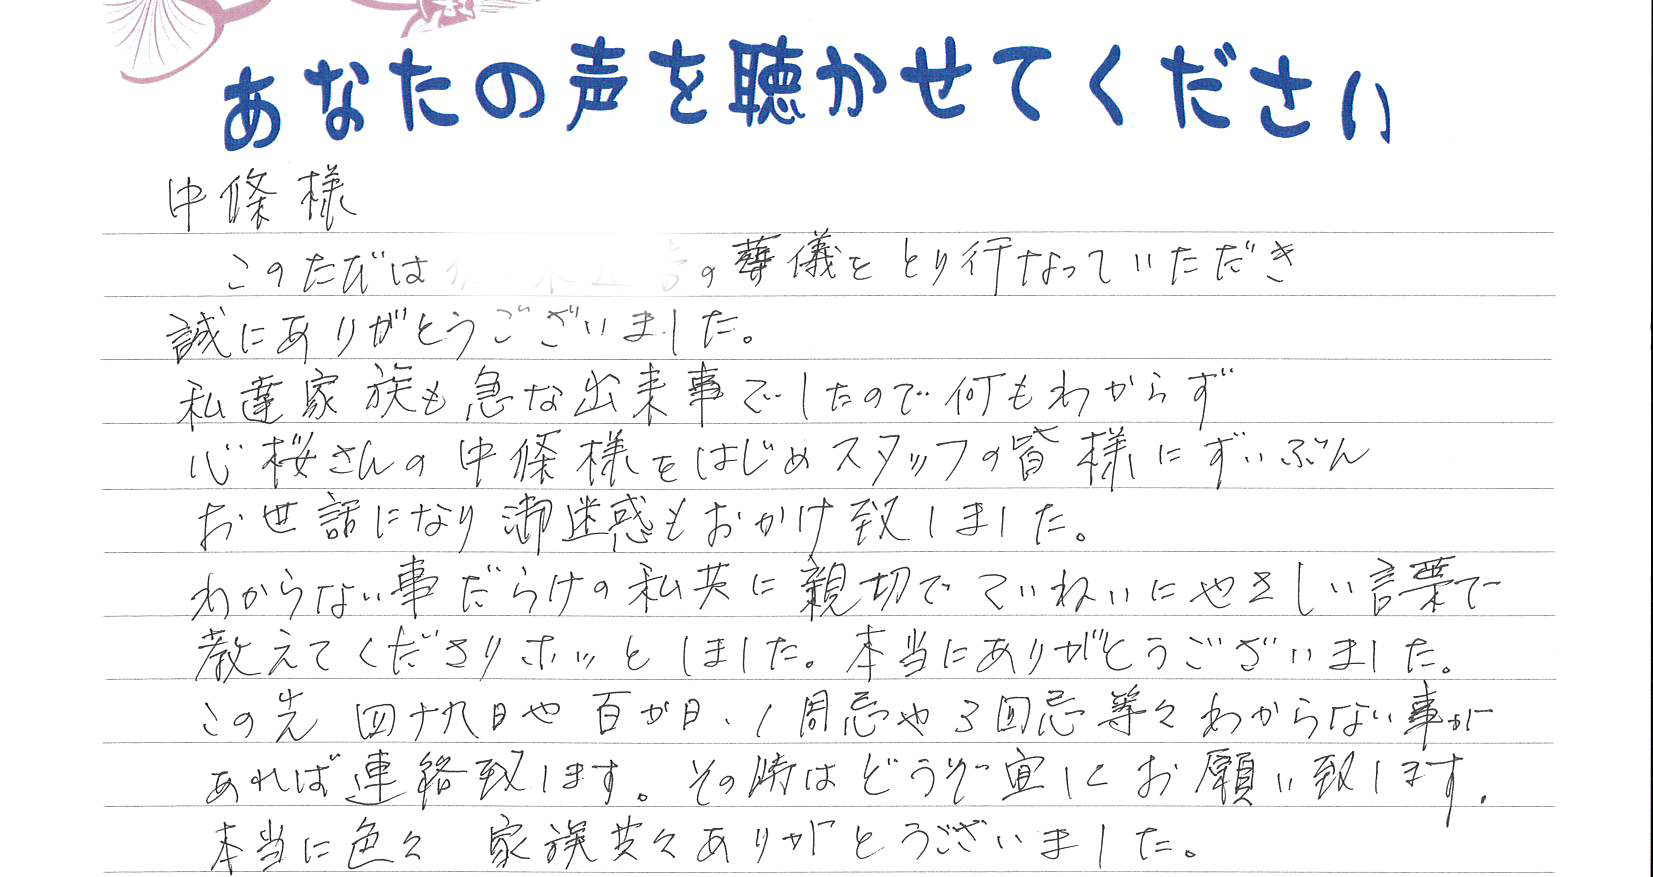 あなたの声を聴かせてください
中條様
このたびは の葬儀をとり行なっていただき
誠にありがとうございました。
私達家族も急な出来事でしたので何もわからず
心桜さんの中條様をはじめスタッフの皆様にずいぶん
お世話になり御迷惑もおかけ致しました。
わからない事だらけの私共に親切でていねいにやさしい言葉で
教えてくださりホッとしました。本当にありがとうございました。
この先 四十九日や百か日、1周忌や3回忌等々わからない事が
あれば連絡致します。その時はどうぞ宜しくお願い致します。
本当に色々 家族共々ありがとうございました。